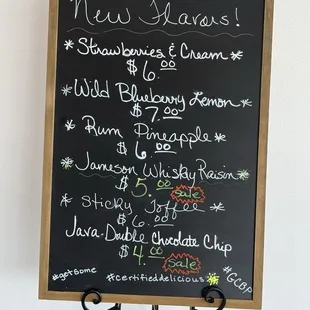 New Flavors!
* Strawberries & Cream *
$6.00
*Wild Blueberry Lemon*
$7.00
* Rum Pineapple *
$6.00
* Jameson Whisky Raisin *
$5.00 Sale
* Sticky Toffee *
$6.00
Java-Double Chocolate Chip
$4.00 Sale
#getsome #certifieddelicious #GCBP